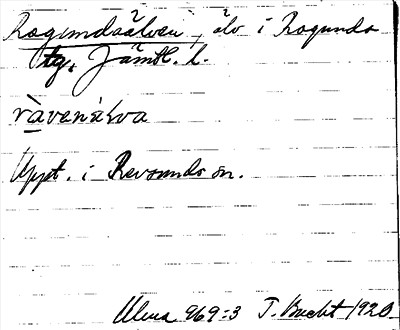 Ragundaälven, älv i Ragunda
tg, Jämtl. l.
ràvenáɫva
Uppt. i Revsunds sn.
Ulma 969:3 T. Bucht 1920.